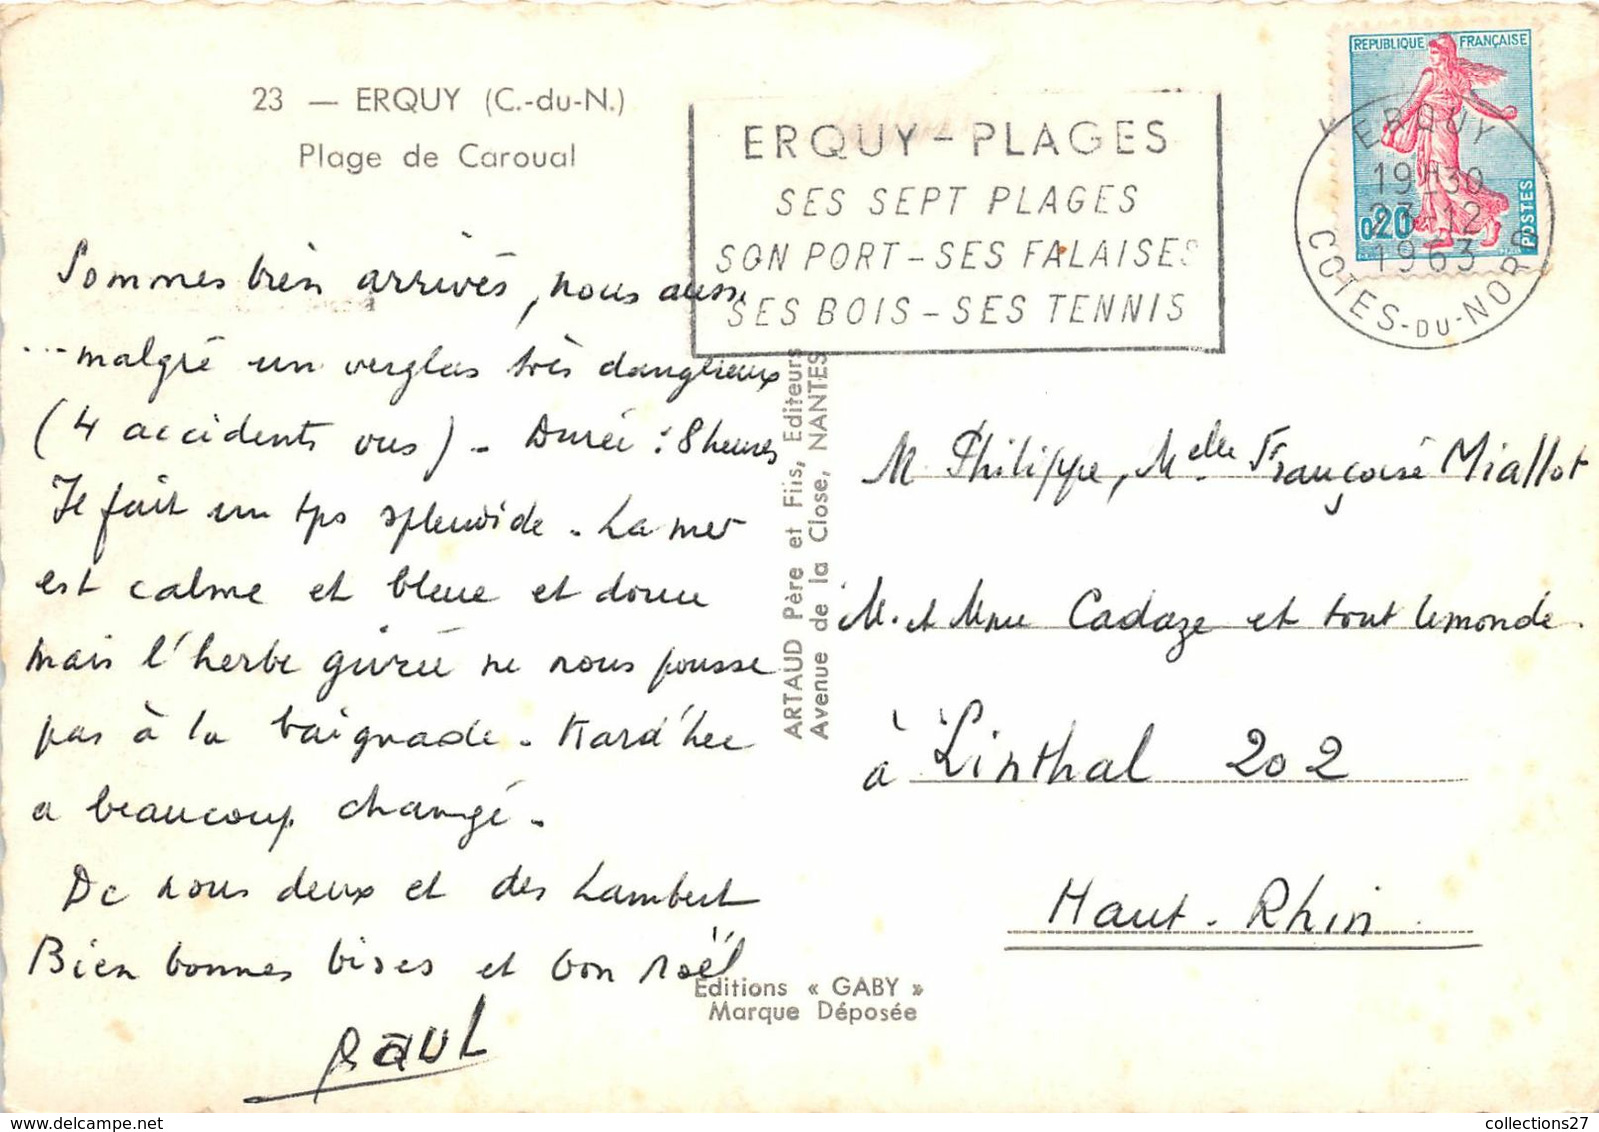 23 — ERQUY (C.-du-N.)
Plage de Caroual
Sommes bien arrivés, nous aussi
... malgré un verglas très dangereux
(4 accidents vus) - Durée : 8 heures
Il fait un tps splendide - La mer
est calme et bleue et douce
mais l'herbe givrée ne nous pousse
pas à la baignade -
a beaucoup changé -
De nous deux et des Lambert
Bien bonnes bises et bon Noël
PAUL
ERQUY - PLAGES
SES SEPT PLAGES
SON PORT - SES FALAISES
SES BOIS - SES TENNIS
REPUBLIQUE FRANÇAISE
0,20
POSTES
ERQUY
19H30
23-12
1963
COTES-DU-NORD
ARTAUD Père et Fils, Editeurs
Avenue de la Close, NANTES
M. Philippe, Melle Françoise Miallot
M. et Mme Cadaze et tout le monde.
à Linthal 202
Haut-Rhin
Editions « GABY »
Marque Déposée
collections27